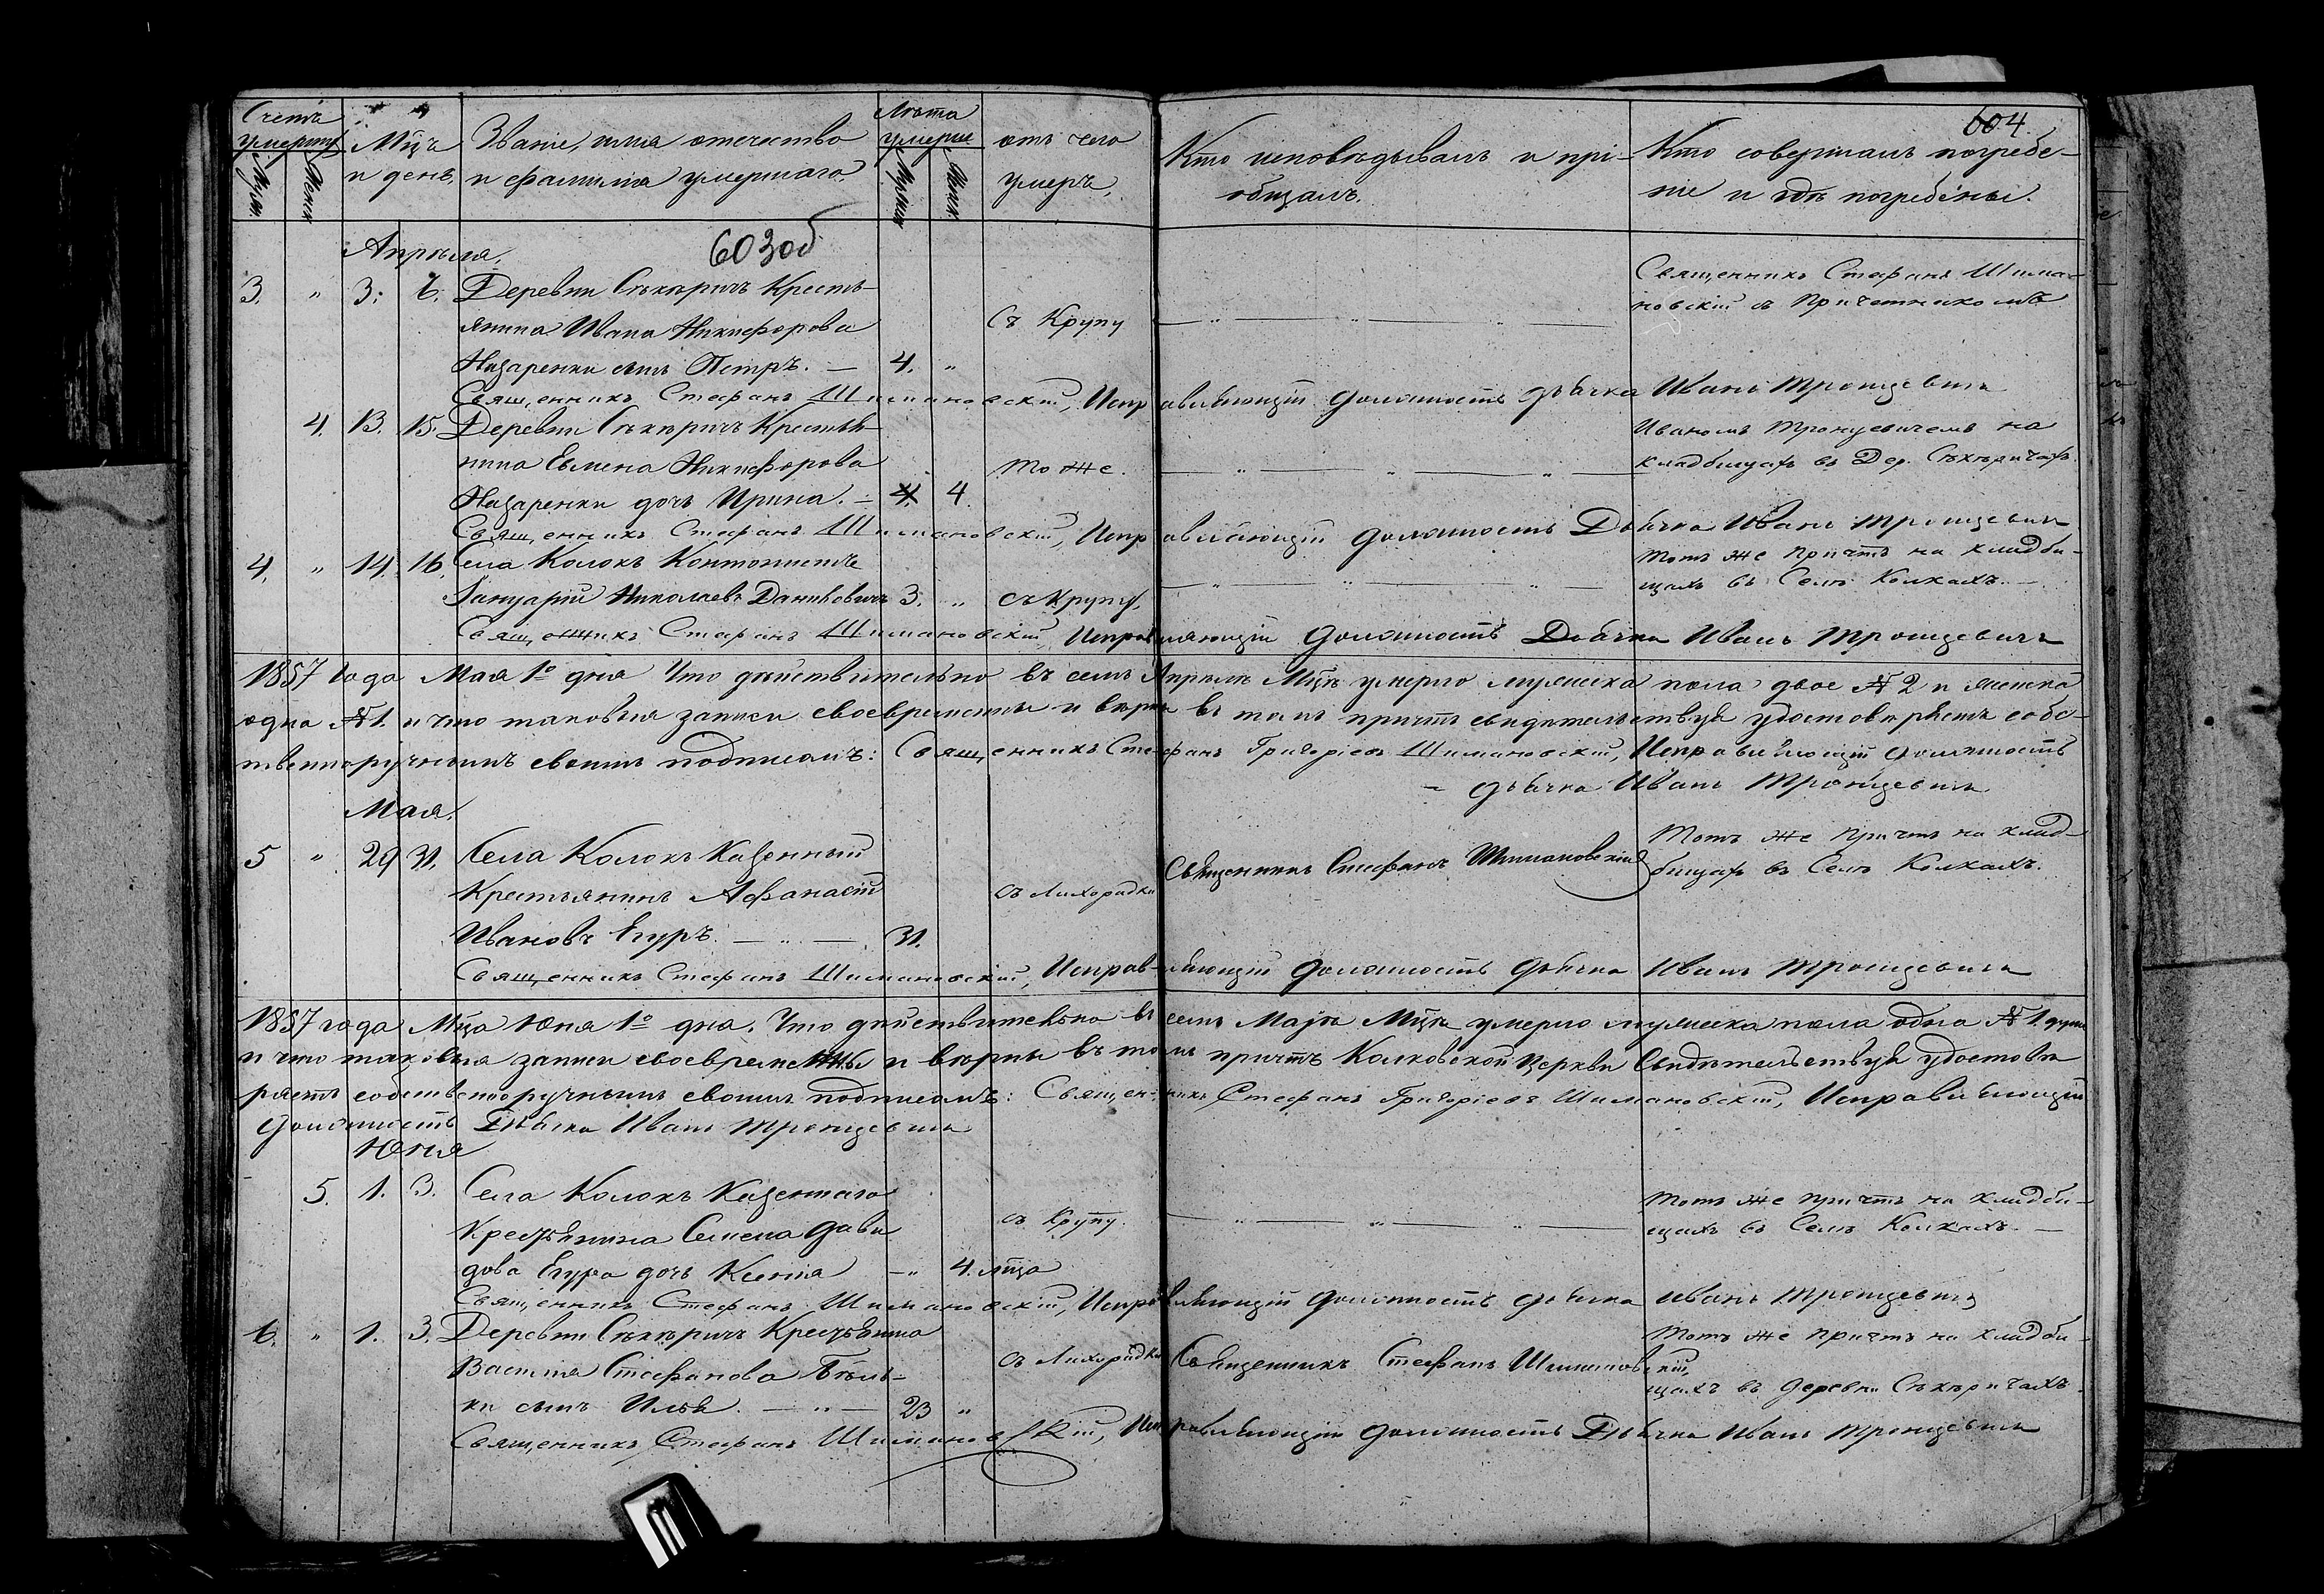 Счетъ умершихъ
Мужес.
Женск.
Мцъ и день.
Званіе, имя отечество
и фамилія умершаго.
Лѣта умерше
Мужеск
Женск.
отъ чего
умеръ.
Кто исповѣдывалъ и прі-
общалъ.
Кто совершалъ погребе-
ніе и гдѣ погребены.
604
603об
Апрѣля.
3. " 3. 6. Деревни Сѣкиричъ Кресть-
янина Ивана Никифорова
Назаренки сынъ Петръ. — 4. "
Съ Крупу
Священникъ Стефанъ Шима-
новскій съ Причетникомъ
Священникъ Стефанъ Шимановскій, Исправляющій должность дьячка Иванъ Троицевичъ
4. 13. 15. Деревни Сѣкиричъ Крестья-
нина Евмена Никифорова
Назаренки дочь Ирина. — 4
тоже.
Иваномъ Троицевичемъ на
кладбищахъ въ Дер. Сѣкиричахъ.
Священникъ Стефанъ Шимановскій, Исправляющій должность Дьячка Иванъ Троицевичъ
4. " 14. 16. Села Колокъ Кантонистъ
Іануарій Николаевъ Даниловичъ 3. "
съ Крупу,
тотъ же Причтъ на кладби-
щахъ въ Селѣ Колкахъ. —
Священникъ Стефанъ Шимановскій, Исправляющій должность Дьячка Иванъ Троицевичъ
1857 года Мая 1о дня Что дѣйствительно въ семъ Апрѣлѣ Мцѣ умерло мужеска пола двое № 2 и женска
одна № 1. и что таковыя записи своевременны и вѣрны въ томъ причтъ свидѣтельствуя удостовѣряетъ собс-
твенноручнымъ своимъ подписомъ: Священникъ Стефанъ Григоріевъ Шимановскій, Исправляющій должность
— дьячка Иванъ Троицевичъ
Мая.
5 " 29 31. Села Колокъ Казенный
Крестьянинъ Афанасій
Ивановъ Егуръ. — " — 31.
съ Лихорадки
Священникъ Стефанъ Шимановскій
Тотъ же Причтъ на клад-
бищахъ въ Селѣ Колкахъ.
Священникъ Стефанъ Шимановскій, Исправляющій должность дьячка Иванъ Троицевичъ
1857 года Мца Юня 1о дня. Что дѣйствительно въ семъ Маѣ Мцѣ умерло мужеска пола одна № 1. душа
и что таковыя записи своевременны и вѣрны въ томъ причтъ Колковской Церкви Свидѣтельствуя удостовѣ
ряетъ собственноручнымъ своимъ подписомъ: Священникъ Стефанъ Григоріевъ Шимановскій, Исправляющій
должность Дьячка Иванъ Троицевичъ
Юня
5. 1. 3. Села Колокъ Казеннаго
Крестьянина Семена Дави
дова Егура дочь Ксенія — " 4. мца
съ Крупу.
тотъ же Причтъ на кладби-
щахъ въ Селѣ Колкахъ. —
Священникъ Стефанъ Шимановскій, Исправляющій должность дьячка Иванъ Троицевичъ
6. " 1. 3. Деревни Сѣкиричъ Крестьянина
Василія Стефанова Бѣль-
ки сынъ Илья. — " — 23 "
съ Лихорадки
Священникъ Стефанъ Шимановскій,
Тотъ же Причтъ на кладби-
щахъ въ деревни Сѣкиричахъ.
Священникъ Стефанъ Шимановскій, Исправляющій должность Дьячка Иванъ Троицевичъ